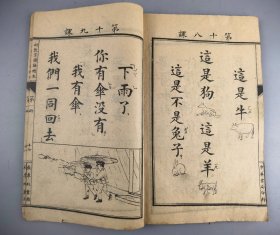 第十八課
這是牛
這是狗 這是羊
這是不是兔子
第十九課
下雨了
你有傘沒有
我有傘
我們一同回去